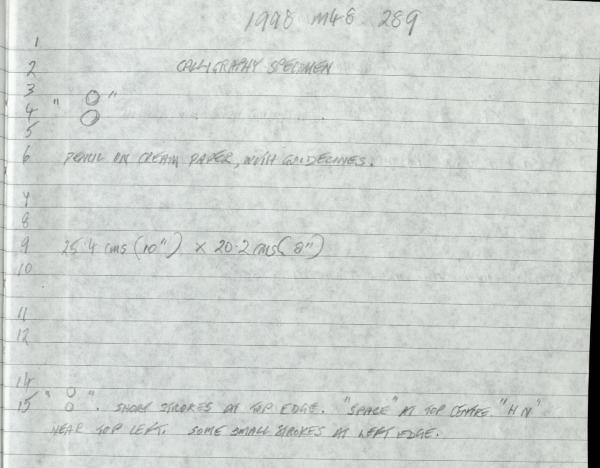 1998 M48 289
1
2 CALLIGRAPHY SPECIMEN
3 " O "
4 O
5
6 PENCIL ON CREAM PAPER, WITH GUIDELINES.
7
8
9 25.4 cms (10") × 20.2 cms (8")
10
11
12
14 " O
15 O ". SHORT STROKES AT TOP EDGE. "SPACE" AT TOP CENTRE. "H N"
NEAR TOP LEFT. SOME SMALL STROKES AT LEFT EDGE.